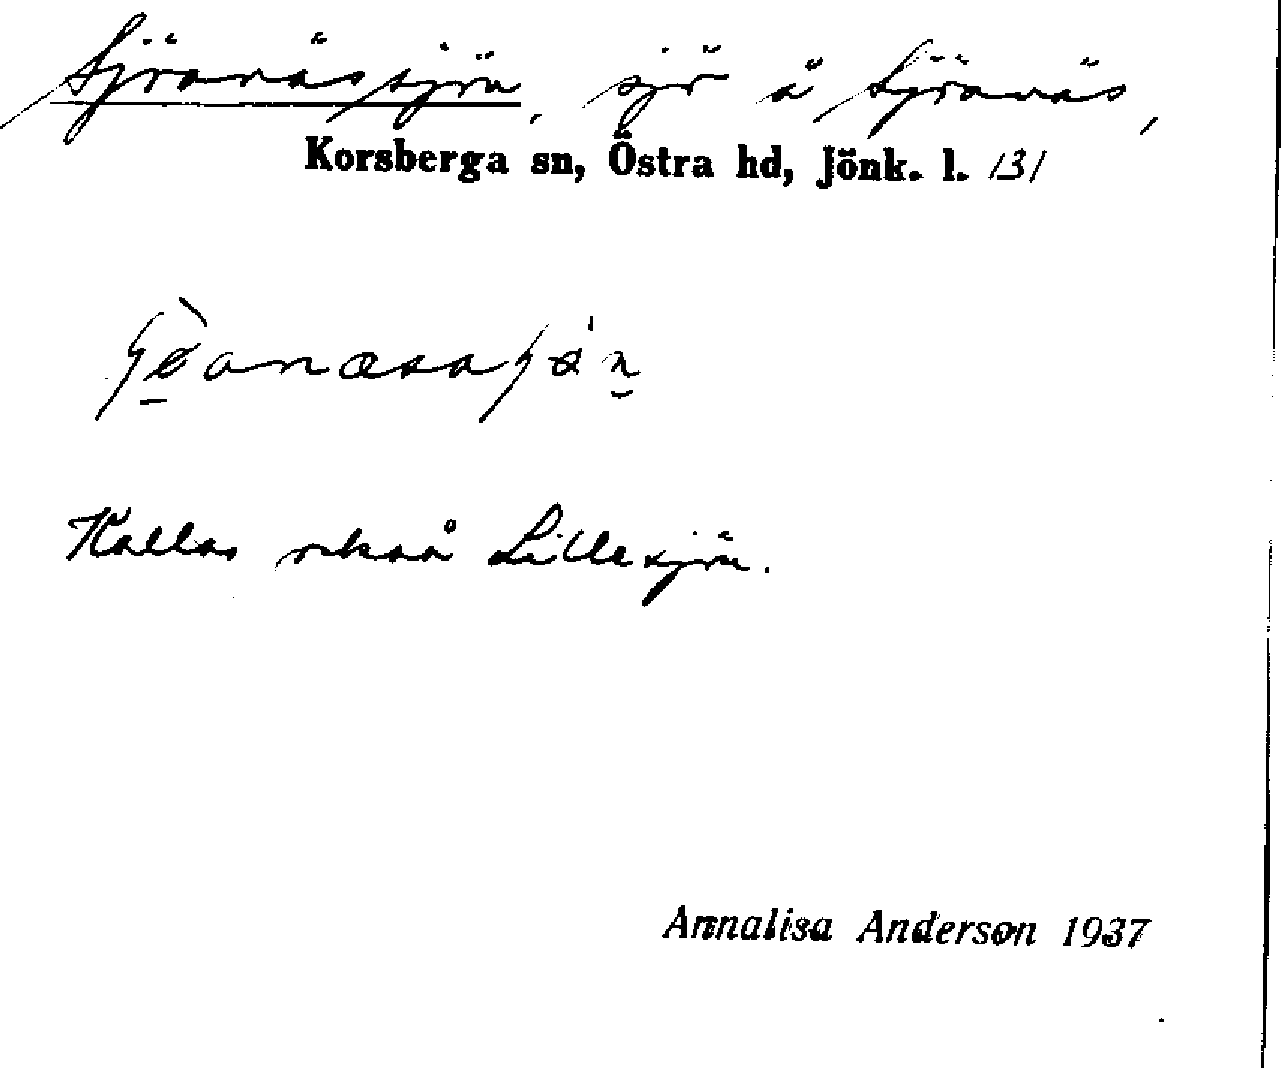 Sjöanässjön, sjö å Sjöanäs,
Korsberga sn, Östra hd, Jönk. l. 131
Kallas också Lillesjön.
Annalisa Anderson 1937